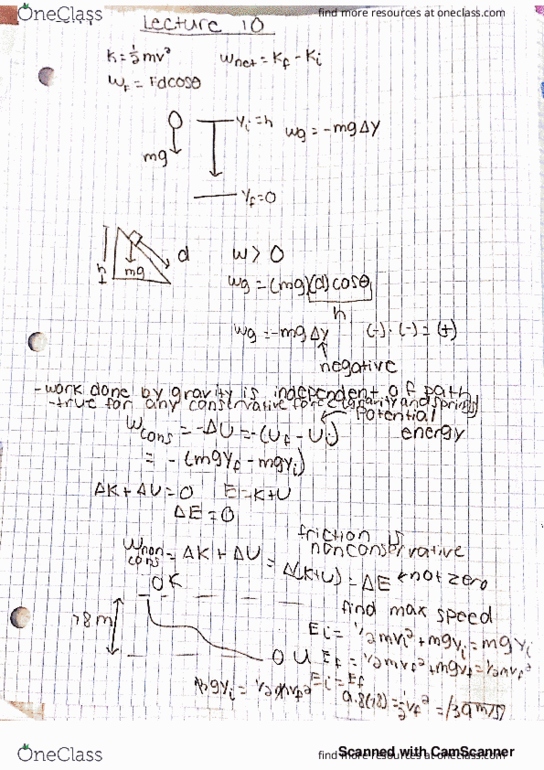 OneClass
find more resources at oneclass.com
Lecture 10
K = ½mv² Wnet = Kf - Ki
WF = Fdcosθ
yi = h Wg = -mgΔy
mg
yf = 0
h mg d W > 0
Wg = (mg)(d)cosθ
h
Wg = -mgΔy (-)·(-) = (+)
negative
-work done by gravity is independent of path
-true for any conservative force (gravity and spring)
Wcons = -ΔU = -(Uf - Ui) potential energy
= -(mgyf - mgyi)
ΔK + ΔU = 0 E = K+U
ΔE = 0
friction is nonconservative
Wnon cons = ΔK + ΔU = Δ(K+U) = ΔE ← not zero
0 K
find max speed
78 m
Ei = ½mvi² + mgyi = mgyi
0 U Ef = ½mvf² + mgyf = ½mvf²
Ei = Ef
mgyi = ½mvf²
9.8(78) = ½vf² =
OneClass
find more resources at oneclass.com
Scanned with CamScanner